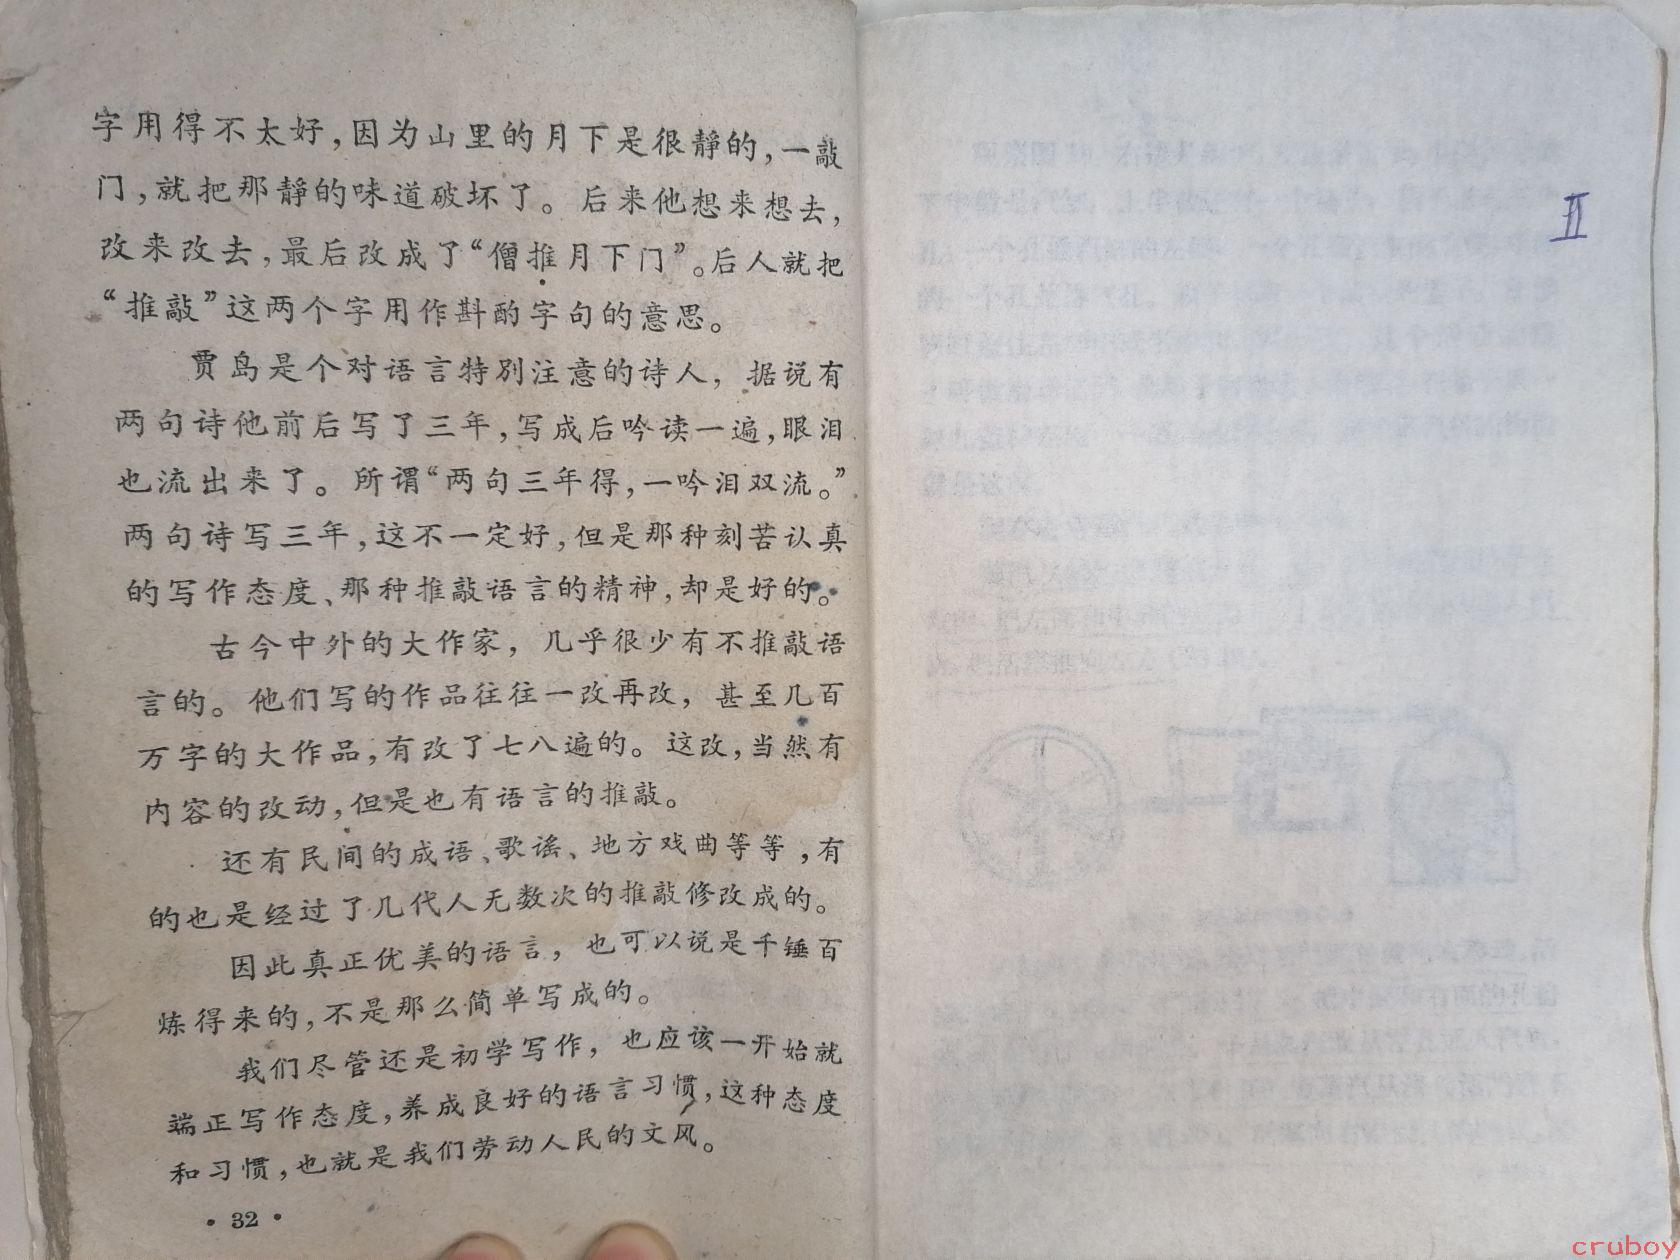 字用得不太好，因为山里的月下是很静的，一敲
门，就把那静的味道破坏了。后来他想来想去，
改来改去，最后改成了“僧推月下门”。后人就把
“推敲”这两个字用作斟酌字句的意思。
贾岛是个对语言特别注意的诗人，据说有
两句诗他前后写了三年，写成后吟读一遍，眼泪
也流出来了。所谓“两句三年得，一吟泪双流。”
两句诗写三年，这不一定好，但是那种刻苦认真
的写作态度、那种推敲语言的精神，却是好的。
古今中外的大作家，几乎很少有不推敲语
言的。他们写的作品往往一改再改，甚至几百
万字的大作品，有改了七八遍的。这改，当然有
内容的改动，但是也有语言的推敲。
还有民间的成语、歌谣、地方戏曲等等，有
的也是经过了几代人无数次的推敲修改成的。
因此真正优美的语言，也可以说是千锤百
炼得来的，不是那么简单写成的。
我们尽管还是初学写作，也应该一开始就
端正写作态度，养成良好的语言习惯，这种态度
和习惯，也就是我们劳动人民的文风。
·32·
II
cruboy